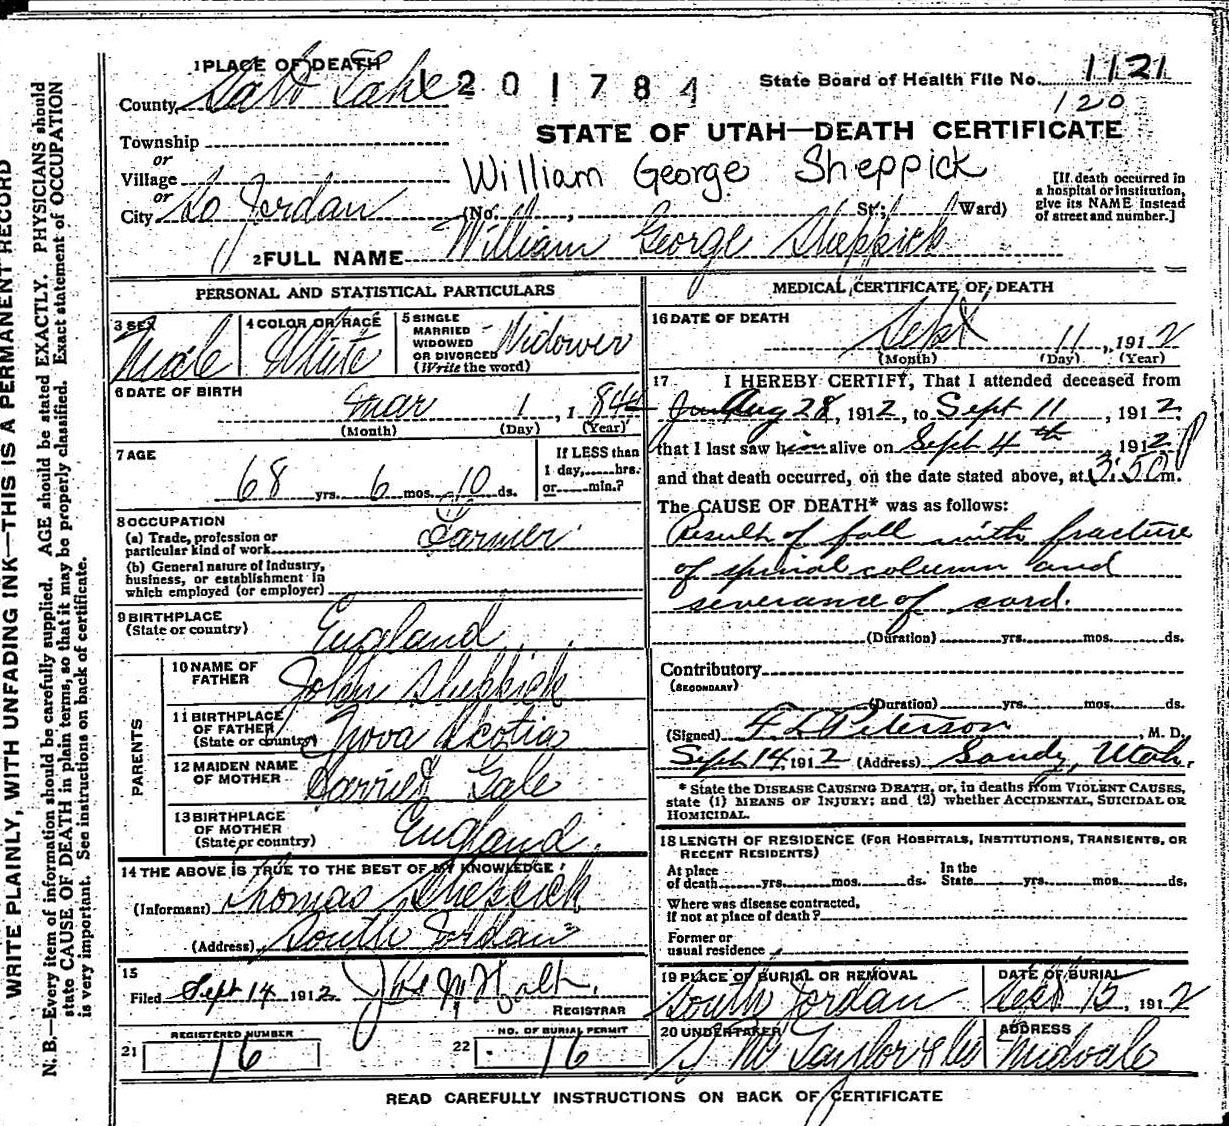 WRITE PLAINLY, WITH UNFADING INK—THIS IS A PERMANENT RECORD
N. B.—Every item of information should be carefully supplied. AGE should be stated EXACTLY. PHYSICIANS should
state CAUSE OF DEATH in plain terms, so that it may be properly classified. Exact statement of OCCUPATION
is very important. See instructions on back of certificate.
1 PLACE OF DEATH
County Salt Lake
1201784
State Board of Health File No. 1121
120
STATE OF UTAH—DEATH CERTIFICATE
Township
or
Village
or
City So Jordan
William George Sheppick
(No. , St.; Ward)
[If death occurred in
a hospital or institution,
give its NAME instead
of street and number.]
2 FULL NAME William George Sheppick
PERSONAL AND STATISTICAL PARTICULARS
3 SEX Male
4 COLOR OR RACE White
5 SINGLE
MARRIED
WIDOWED
OR DIVORCED
(Write the word) Widower
6 DATE OF BIRTH
Mar 1, 1844
(Month) (Day) (Year)
7 AGE
68 yrs. 6 mos. 10 ds.
If LESS than
1 day,......hrs.
or......min.?
8 OCCUPATION
(a) Trade, profession or
particular kind of work Farmer
(b) General nature of industry,
business, or establishment in
which employed (or employer)
9 BIRTHPLACE
(State or country) England
PARENTS
10 NAME OF
FATHER John Sheppick
11 BIRTHPLACE
OF FATHER
(State or country) Nova Scotia
12 MAIDEN NAME
OF MOTHER Harriet Gale
13 BIRTHPLACE
OF MOTHER
(State or country) England
14 THE ABOVE IS TRUE TO THE BEST OF MY KNOWLEDGE
(Informant) Thomas Sheppick
(Address) South Jordan
15
Filed Sept 14 1912
REGISTRAR
REGISTERED NUMBER
21 16
NO. OF BURIAL PERMIT
22 16
MEDICAL CERTIFICATE OF DEATH
16 DATE OF DEATH
Sept 11, 1912
(Month) (Day) (Year)
17 I HEREBY CERTIFY, That I attended deceased from
Aug 28, 1912, to Sept 11, 1912.
that I last saw him alive on Sept 4th 1912
and that death occurred, on the date stated above, at 3:50 P m.
The CAUSE OF DEATH* was as follows:
Result of fall with fracture
of spinal column and
severance of cord.
(Duration) yrs. mos. ds.
Contributory
(SECONDARY)
(Duration) yrs. mos. ds.
(Signed) F. L. Peterson, M. D.
Sept 14, 1912 (Address) Sandy, Utah.
* State the DISEASE CAUSING DEATH, or, in deaths from VIOLENT CAUSES,
state (1) MEANS OF INJURY; and (2) whether ACCIDENTAL, SUICIDAL OR
HOMICIDAL.
18 LENGTH OF RESIDENCE (FOR HOSPITALS, INSTITUTIONS, TRANSIENTS, OR
RECENT RESIDENTS)
At place
of death......yrs......mos......ds.
In the
State......yrs......mos......ds.
Where was disease contracted,
if not at place of death?
Former or
usual residence
19 PLACE OF BURIAL OR REMOVAL
South Jordan
DATE OF BURIAL
Sept 15, 1912
20 UNDERTAKER
Taylor & Co
ADDRESS
Midvale
READ CAREFULLY INSTRUCTIONS ON BACK OF CERTIFICATE